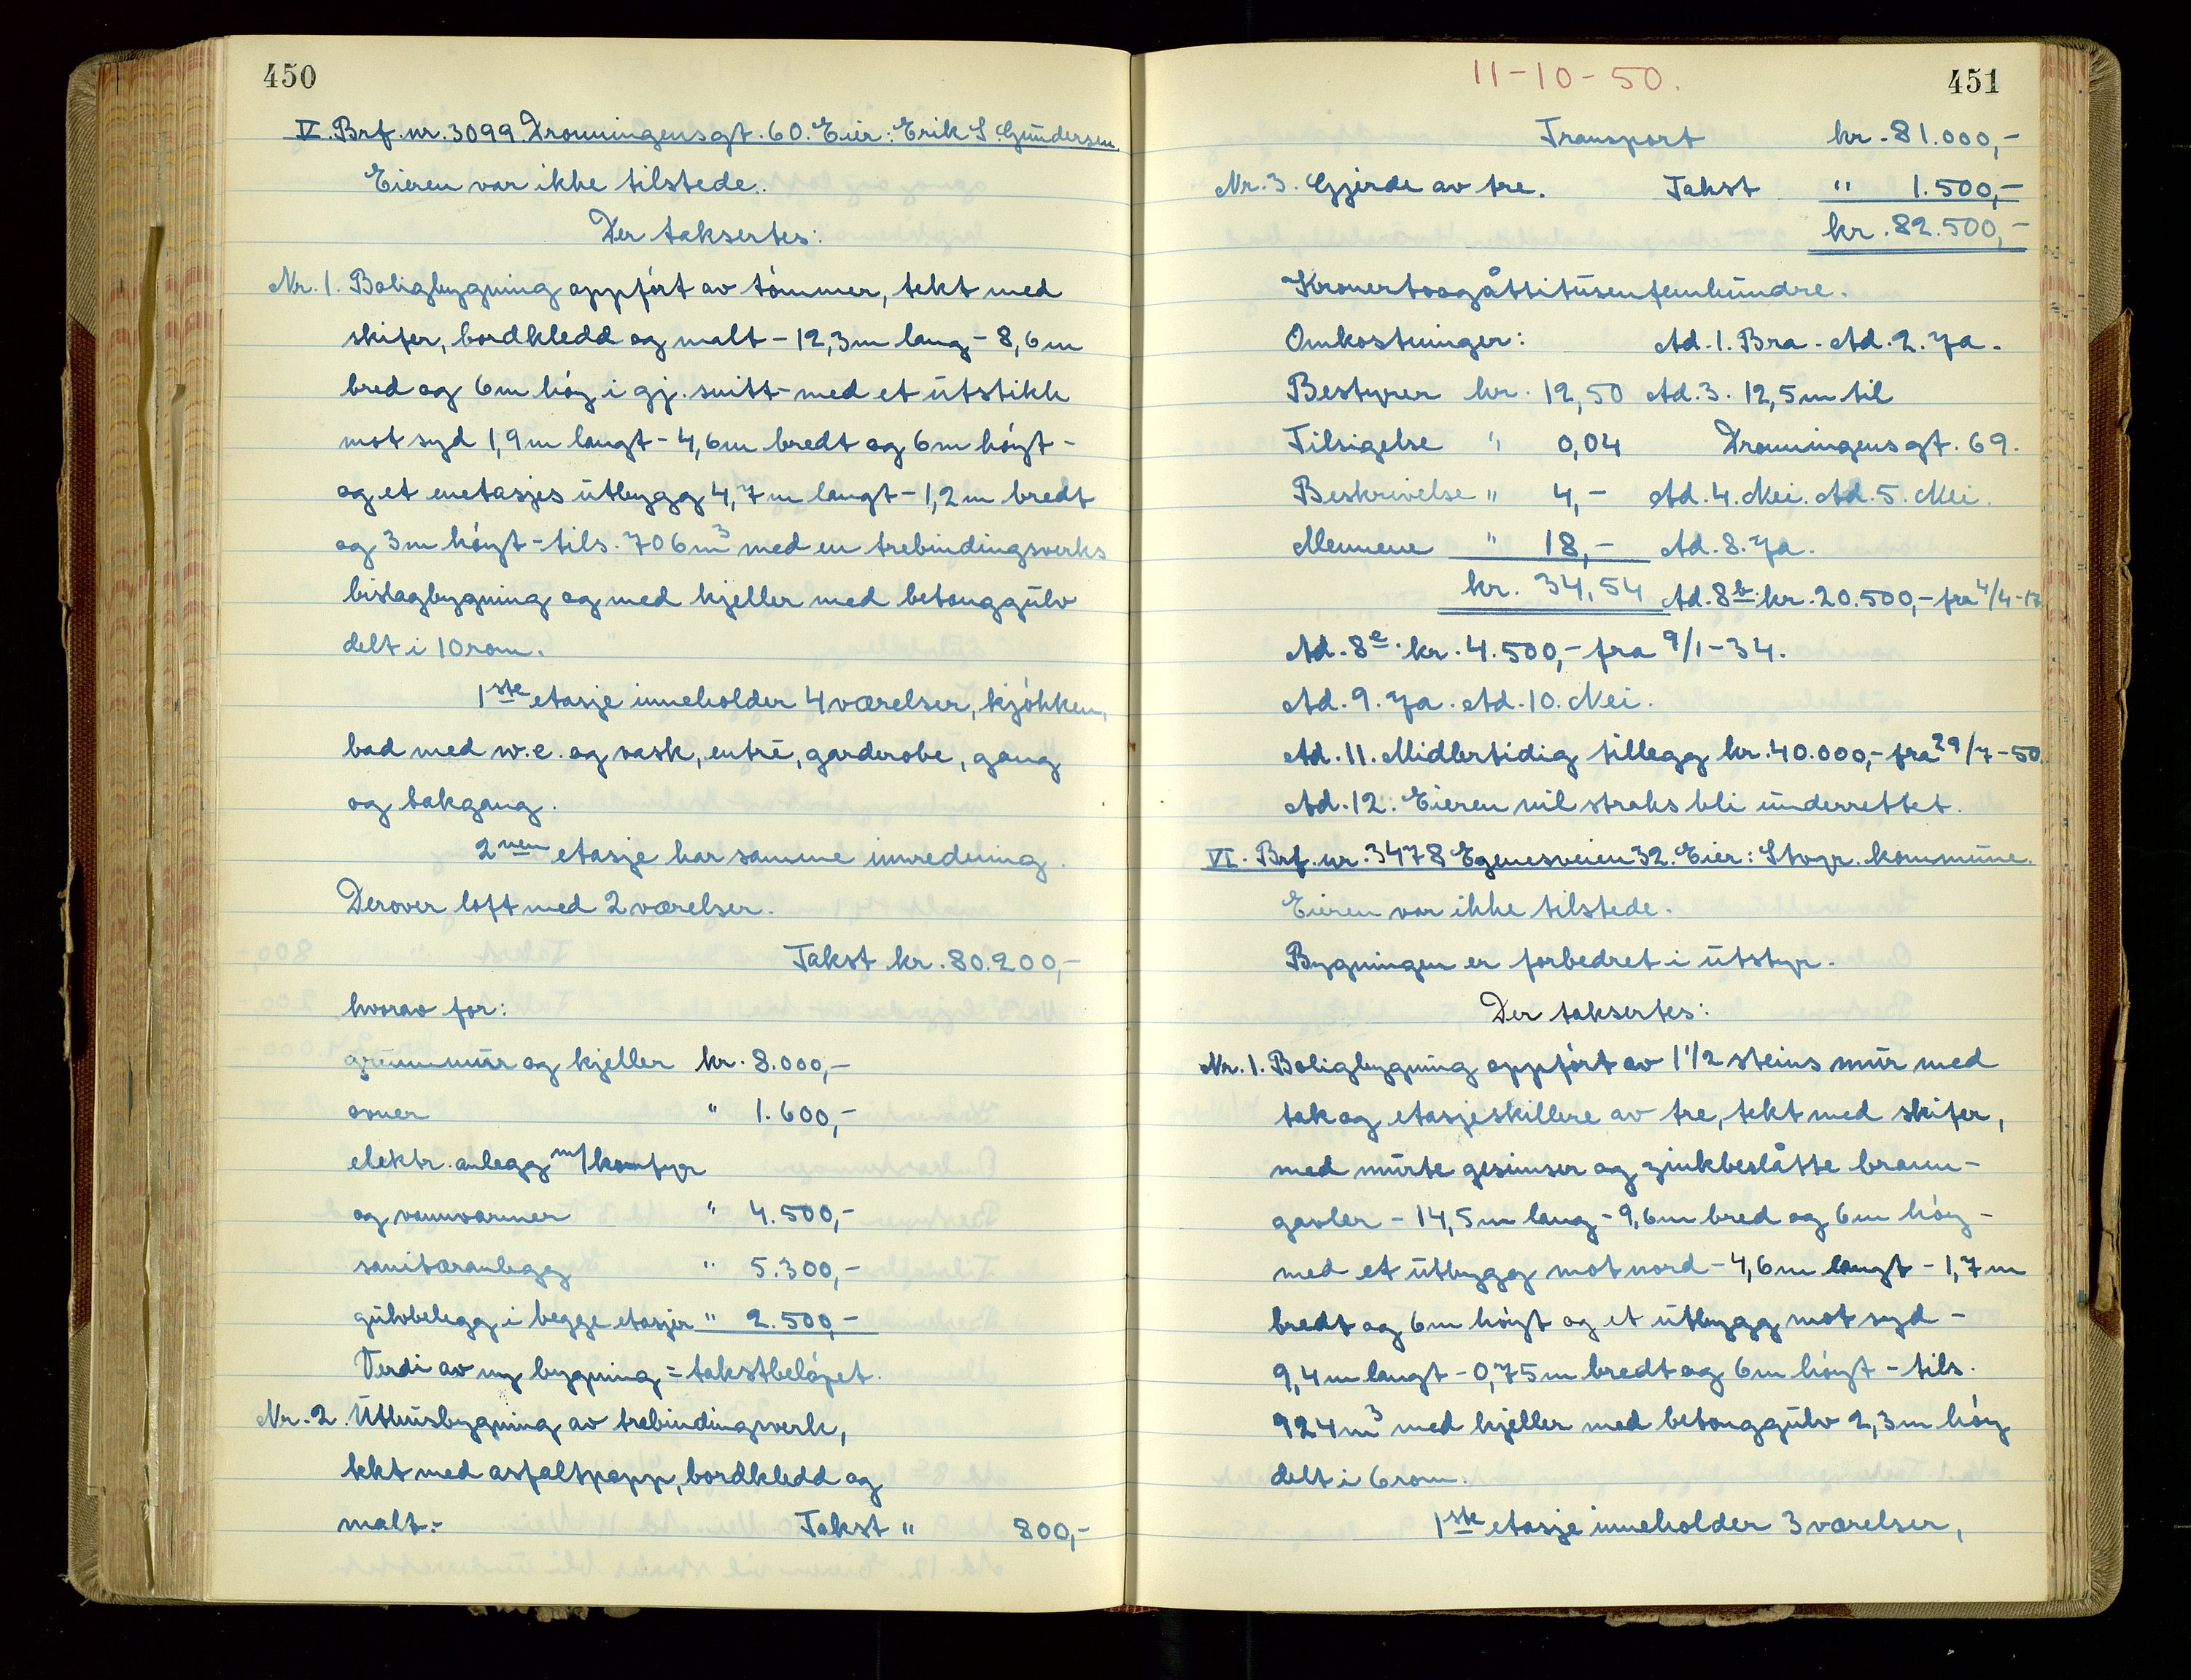 450
V. Brf. nr. 3099. Dronningensgt. 60. Eier: Erik S. Gundersen.
Eieren var ikke tilstede.
Der taksertes:
Nr. 1. Boligbygning oppført av tømmer, tekt med
skifer, bordkledd og malt - 12,3m lang - 8,6m
bred og 6m høy i gj. snitt - med et utstikk
mot syd 1,9m langt - 4,6m bredt og 6m høyt -
og et enetasjes utbygg 4,7m langt - 1,2m bredt
og 3m høyt - tils. 706m³ med en trebindingsverks
bislagbygning og med kjeller med betonggulv
delt i 10 rom.
1ste etasje inneholder 4 værelser, kjøkken,
bad med w.c. og vask, entré, garderobe, gang
og bakgang.
2nen etasje har samme innredning.
Derover loft med 2 værelser.
Takst kr. 80.200,-
hvorav for:
grunnmur og kjeller kr. 8.000,-
ovner " 1.600,-
elektr. anlegg m/komfyr
og vannvarmer " 4.500,-
sanitæranlegg " 5.300,-
gulvbelegg i begge etasjer " 2.500,-
Verdi av ny bygning = takstbeløpet.
Nr. 2. Uthusbygning av trebindingsverk,
tekt med asfaltpapp, bordkledd og
malt.- Takst " 800,-
11-10-50.
451
Transport kr. 81.000,-
Nr. 3. Gjerde av tre. Takst " 1.500,-
kr. 82.500,-
Kronertoogåttitusenfemhundre.
Omkostninger: Ad. 1. Bra. Ad. 2. Ja.
Bestyrer kr. 12,50 Ad. 3. 12,5m til
Tilsigelse " 0,04 Dronningensgt. 69.
Beskrivelse " 4,- Ad. 4. Nei. Ad. 5. Nei.
Mennene " 18,- Ad. 8. Ja.
kr. 34,54 Ad. 8b. kr. 20.500,- fra 4/4-17
Ad. 8c. kr. 4.500,- fra 9/1-34.
Ad. 9. Ja. Ad. 10. Nei.
Ad. 11. Midlertidig tillegg kr. 40.000,- fra 29/7-50
Ad. 12. Eieren vil straks bli underrettet.
VI. Brf. nr. 3478 Egenesveien 32. Eier: Stvgr. kommune.
Eieren var ikke tilstede.
Bygningen er forbedret i utstyr.
Der taksertes:
Nr. 1. Boligbygning oppført av 1 1/2 steins mur med
tak og etasjeskillere av tre, tekt med skifer,
med murte gesimser og zinkbeslåtte brann-
gavler - 14,5m lang - 9,6m bred og 6m høy -
med et utbygg mot nord - 4,6m langt - 1,7m
bredt og 6m høyt og et utbygg mot syd -
9,4m langt - 0,75m bredt og 6m høyt - tils.
924m³ med kjeller med betonggulv 2,3m høy
delt i 6 rom.
1ste etasje inneholder 3 værelser,